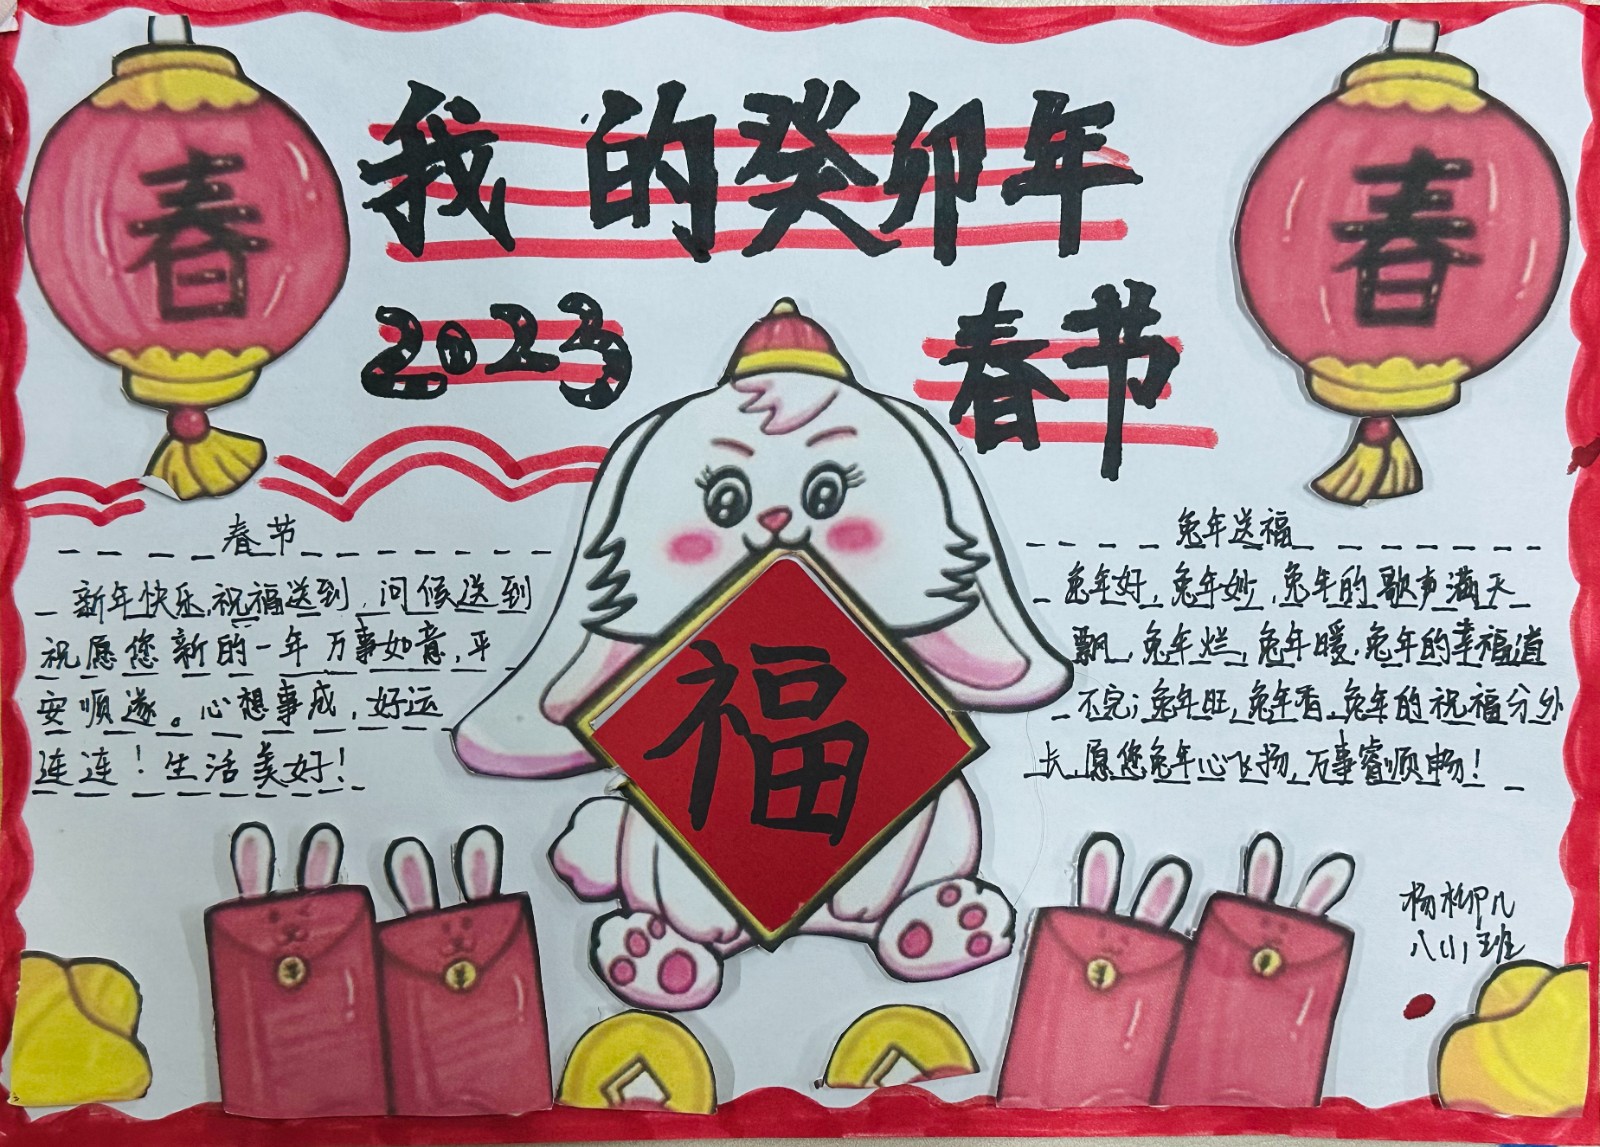 春
春
我的癸卯年
2023
春节
春节
新年快乐,祝福送到,问候送到
祝愿您新的一年万事如意,平
安顺遂。心想事成,好运
连连!生活美好!
福
兔年送福
兔年好,兔年妙,兔年的歌声满天
飘,兔年烂,兔年暖,兔年的幸福道
不完;兔年旺,兔年香,兔年的祝福分外
长,愿您兔年心飞扬,万事睿顺畅!
杨柳儿
班